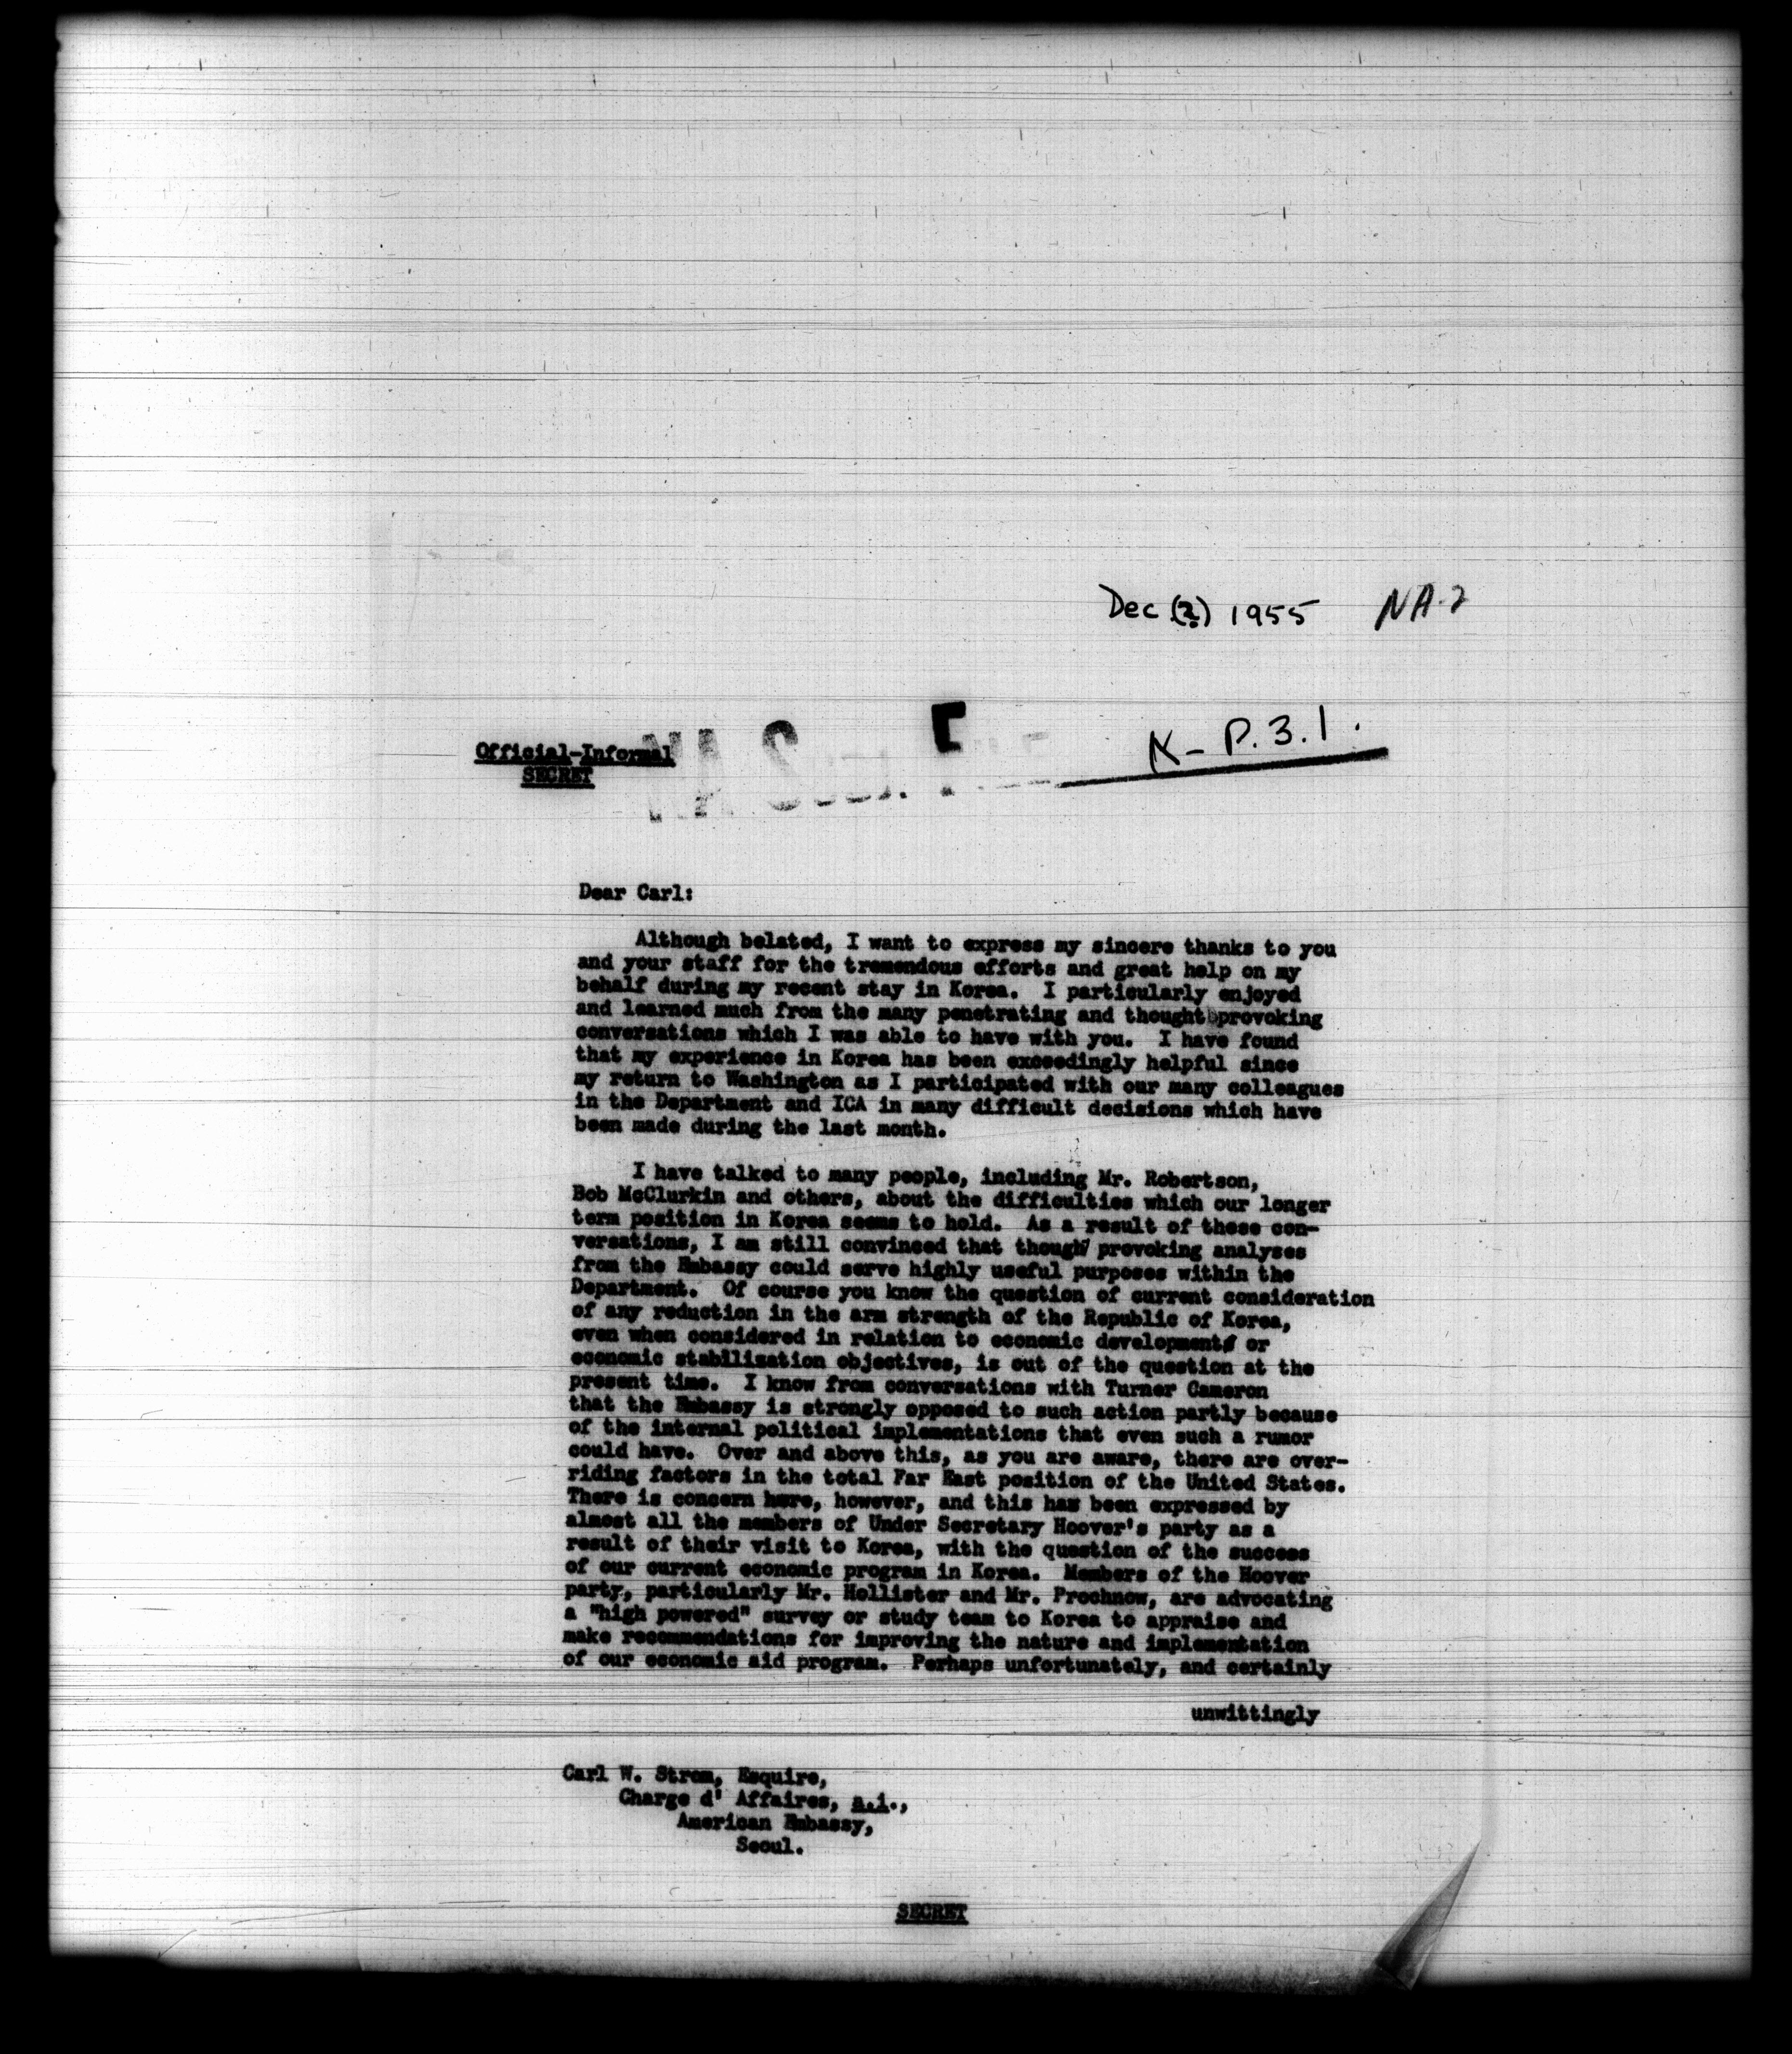 Dec (?) 1955 NA-2
K- P.3.1.
Official-Informal
SECRET
Dear Carl:
Although belated, I want to express my sincere thanks to you
and your staff for the tremendous efforts and great help on my
behalf during my recent stay in Korea. I particularly enjoyed
and learned much from the many penetrating and thought provoking
conversations which I was able to have with you. I have found
that my experience in Korea has been exceedingly helpful since
my return to Washington as I participated with our many colleagues
in the Department and ICA in many difficult decisions which have
been made during the last month.
I have talked to many people, including Mr. Robertson,
Bob McClurkin and others, about the difficulties which our longer
term position in Korea seems to hold. As a result of these con-
versations, I am still convinced that though provoking analyses
from the Embassy could serve highly useful purposes within the
Department. Of course you know the question of current consideration
of any reduction in the arm strength of the Republic of Korea,
even when considered in relation to economic development or
economic stabilization objectives, is out of the question at the
present time. I know from conversations with Turner Cameron
that the Embassy is strongly opposed to such action partly because
of the internal political implementations that even such a rumor
could have. Over and above this, as you are aware, there are over-
riding factors in the total Far East position of the United States.
There is concern here, however, and this has been expressed by
almost all the members of Under Secretary Hoover's party as a
result of their visit to Korea, with the question of the success
of our current economic program in Korea. Members of the Hoover
party, particularly Mr. Hollister and Mr. Prochnow, are advocating
a "high powered" survey or study team to Korea to appraise and
make recommendations for improving the nature and implementation
of our economic aid program. Perhaps unfortunately, and certainly
unwittingly
Carl W. Strom, Esquire,
Charge d' Affaires, a.i.,
American Embassy,
Seoul.
SECRET